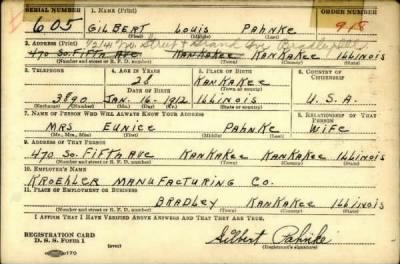 SERIAL NUMBER 1. NAME (Print) ORDER NUMBER
605 GILBERT LOUIS PAHNKE 948
(First) (Middle) (Last)
2. ADDRESS (Print)
470 SO. FIFTH AVE KANKAKEE KANKAKEE ILLINOIS
(Number and street or R. F. D. number) (Town) (County) (State)
3. TELEPHONE 4. AGE IN YEARS 5. PLACE OF BIRTH 6. COUNTRY OF CITIZENSHIP
28 KANKAKEE
DATE OF BIRTH (Town or county)
3890 JAN. 16 - 1912 ILLINOIS U.S.A.
(Exchange) (Number) (Mo.) (Day) (Yr.) (State or country)
7. NAME OF PERSON WHO WILL ALWAYS KNOW YOUR ADDRESS 8. RELATIONSHIP OF THAT PERSON
MRS EUNICE PAHNKE WIFE
(Mr., Mrs., Miss) (First) (Middle) (Last)
9. ADDRESS OF THAT PERSON
470 SO. FIFTH AVE KANKAKEE KANKAKEE ILLINOIS
(Number and street or R. F. D. number) (Town) (County) (State)
10. EMPLOYER'S NAME
KROEHLER MANUFACTURING CO.
11. PLACE OF EMPLOYMENT OR BUSINESS
BRADLEY KANKAKEE ILLINOIS
(Number and street or R. F. D. number) (Town) (County) (State)
I AFFIRM THAT I HAVE VERIFIED ABOVE ANSWERS AND THAT THEY ARE TRUE.
REGISTRATION CARD
D. S. S. Form 1 (over) Gilbert Pahnke
(Registrant's signature)